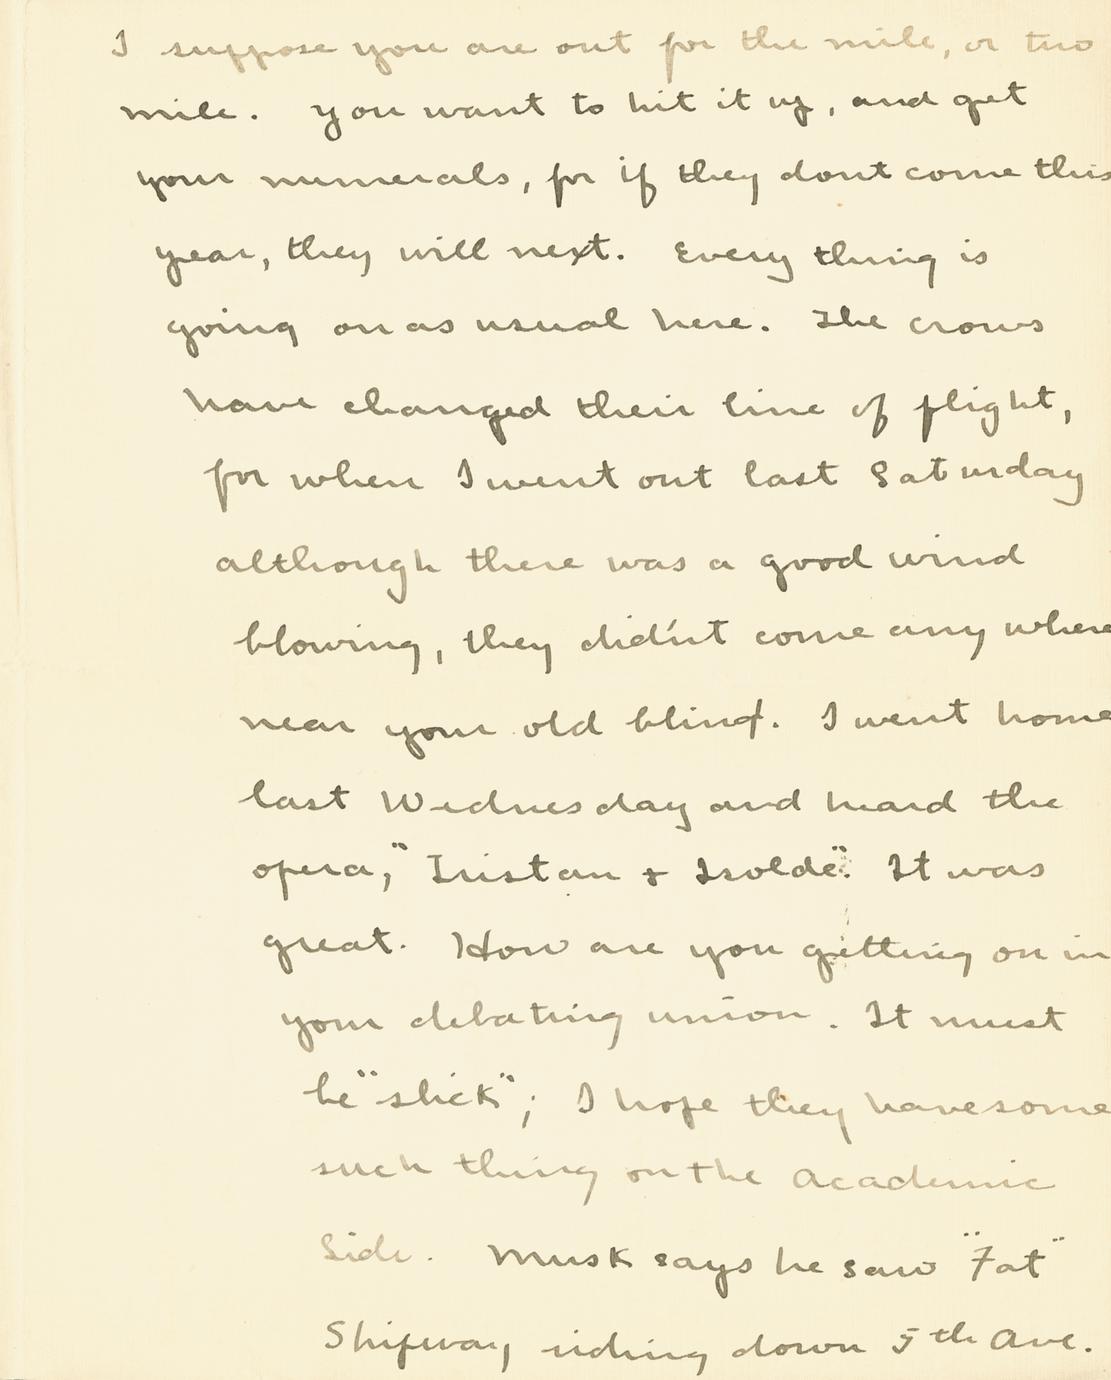 I suppose you are out for the mile, or two
mile. You want to hit it up, and get
your numerals, for if they dont come this
year, they will next. Every thing is
going on as usual here. The crows
have changed their line of flight,
for when I went out last Saturday
although there was a good wind
blowing, they did'nt come any where
near your old blind. I went home
last Wednesday and heard the
opera, "Tristan & Isolde". It was
great. How are you getting on in
your debating union. It must
be "slick"; I hope they have some
such thing on the Academic
Side. Musk says he saw "Fat"
Shipway riding down 5th Ave.